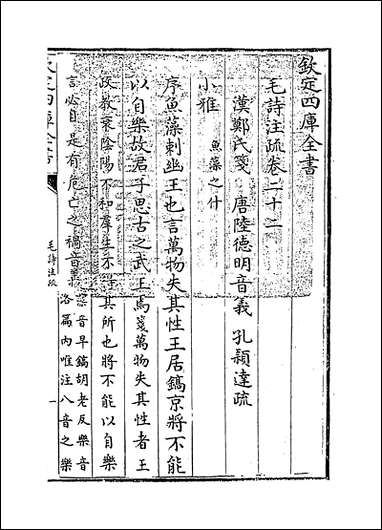 欽定四庫全書
毛詩注疏卷二十二
漢鄭氏箋 唐陸德明音義 孔穎達疏
小雅 魚藻之什
序魚藻刺幽王也言萬物失其性王居鎬京將不能
以自樂故君子思古之武王焉箋萬物失其性者王
政教衰陰陽不和羣生不得其所也將不能以自樂
言必自是有危亡之禍音義
藻音早鎬胡老反樂音
洛篇内唯注八音之樂
欽定四庫全書
毛詩注疏
一